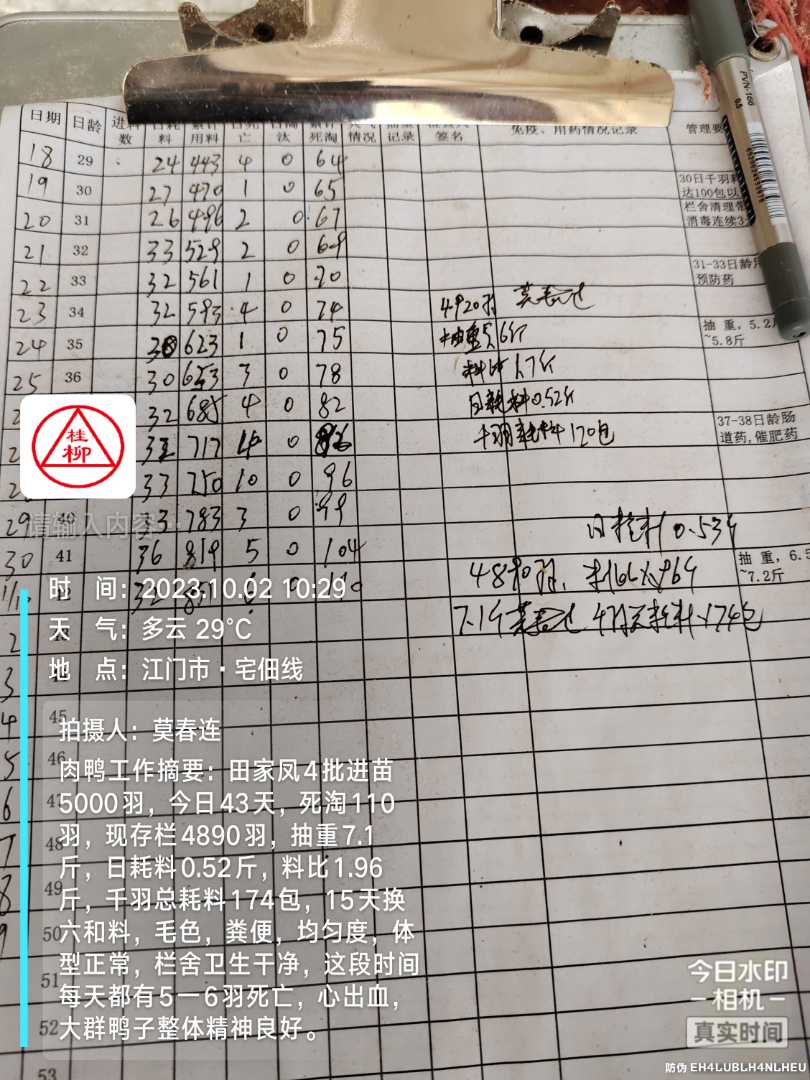 PVN-160
日期 日龄 进料数 日耗料 累计用料 日死亡 日淘汰 累计死淘 天气情况 记录 签名 免疫、用药情况记录 管理要
18 29 24 443 4 0 64
19 30 27 470 1 0 65
30日千羽料
达100包以
栏舍清理带
消毒连续3
20 31 26 496 2 0 67
21 32 33 529 2 0 69
22 33 32 561 1 0 70
31-33日龄
预防药
23 34 32 593 4 0 74 4920羽 莫春连
24 35 30 623 1 0 75 抽重3.6斤
抽重,5.2
~5.8斤
25 36 30 653 3 0 78 料比1.7斤
32 685 4 0 82 日耗料0.52斤
32 717 4 0 86 千羽耗料120包
37-38日龄肠
道药,催肥药
33 750 10 0 96
29 40 33 783 3 0 99 日耗料0.53斤
30 41 36 819 5 0 104
抽重,6.5
~7.2斤
7.1斤 莫春连
桂柳
请输入内容...
时 间:2023.10.02 10:29
天 气:多云 29°C
地 点:江门市·宅佃线
拍摄人:莫春连
肉鸭工作摘要:田家凤4批进苗
5000羽,今日43天,死淘110
羽,现存栏4890羽,抽重7.1
斤,日耗料0.52斤,料比1.96
斤,千羽总耗料174包,15天换
六和料,毛色,粪便,均匀度,体
型正常,栏舍卫生干净,这段时间
每天都有5一6羽死亡,心出血,
大群鸭子整体精神良好。
2
3
4 45
5 46
6
7 48
8 49
9 50
51
52
53
今日水印
相机
真实时间
防伪 EH4LUBLH4NLHEU